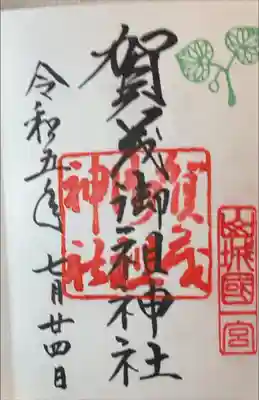 山城國一宮
賀茂御祖神社
賀茂
神社
令和五年七月廿四日